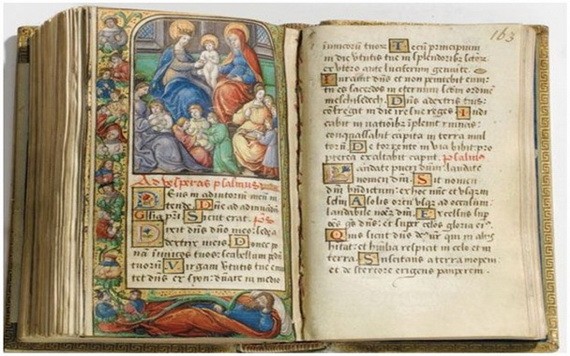 Ad vesperas psalmus
Deus in adiutoriū meū in
tende. Dne ad adiuvandū
Gloria pri. Sicut erat. ps.
Dixit dns dno meo: sede a
dextris meis. Donec po
na inimicos tuos: scabellum pedū
tuorū. Virgam virtutis tue emi
tet dns ex syon: dnare in medio
163
inimicorū tuorū. Tecū principium
in die virtutis tue in splendoribꝰ scorū:
ex utero ante luciferum genui te.
Iuravit dns et non penitebit eum:
tu es sacerdos in eternum scdm ordinē
melchisedech. Dns a dextris tuis:
cōfregit in die ire sue reges. Iudi
cabit in nationibꝰ implebit ruinas:
conquassabit capita in terra mul
torū. De torrente in via bibit: pro
pterea exaltabit caput. psalmus
Laudate pueri dnm: laudate
nomen dni. Sit nomen
dni bndictum: ex hoc nūc et usqꝫ in
sclm. A solis ortu usqꝫ ad occasum:
laudabile nomē dni. Excelsus sup
dns: et super celos gloria eiꝰ.
Quis sicut dns deꝰ nr qui in altis
hitat: et humilia respicit in celo et in
terra. Suscitans a terra inopem:
et de stercore erigens pauperem.